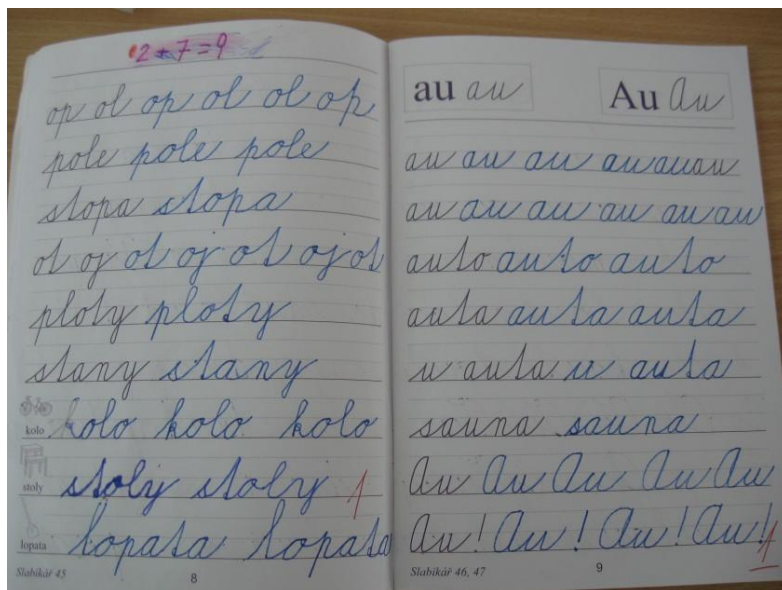 2+7=9
op ol op ol ol op
pole pole pole
stopa stopa
ot oj ot oj ot oj ot
ploty ploty
stany stany
kolo kolo kolo kolo
stoly stoly stoly 1
lopata lopata lopata
Slabikář 45
8
au au Au Au
au au au au au au
au au au au au au
auto auto auto
auta auta auta
u auta u auta
sauna sauna
Au Au Au Au Au
Au! Au! Au! Au! 1
Slabikář 46, 47
9